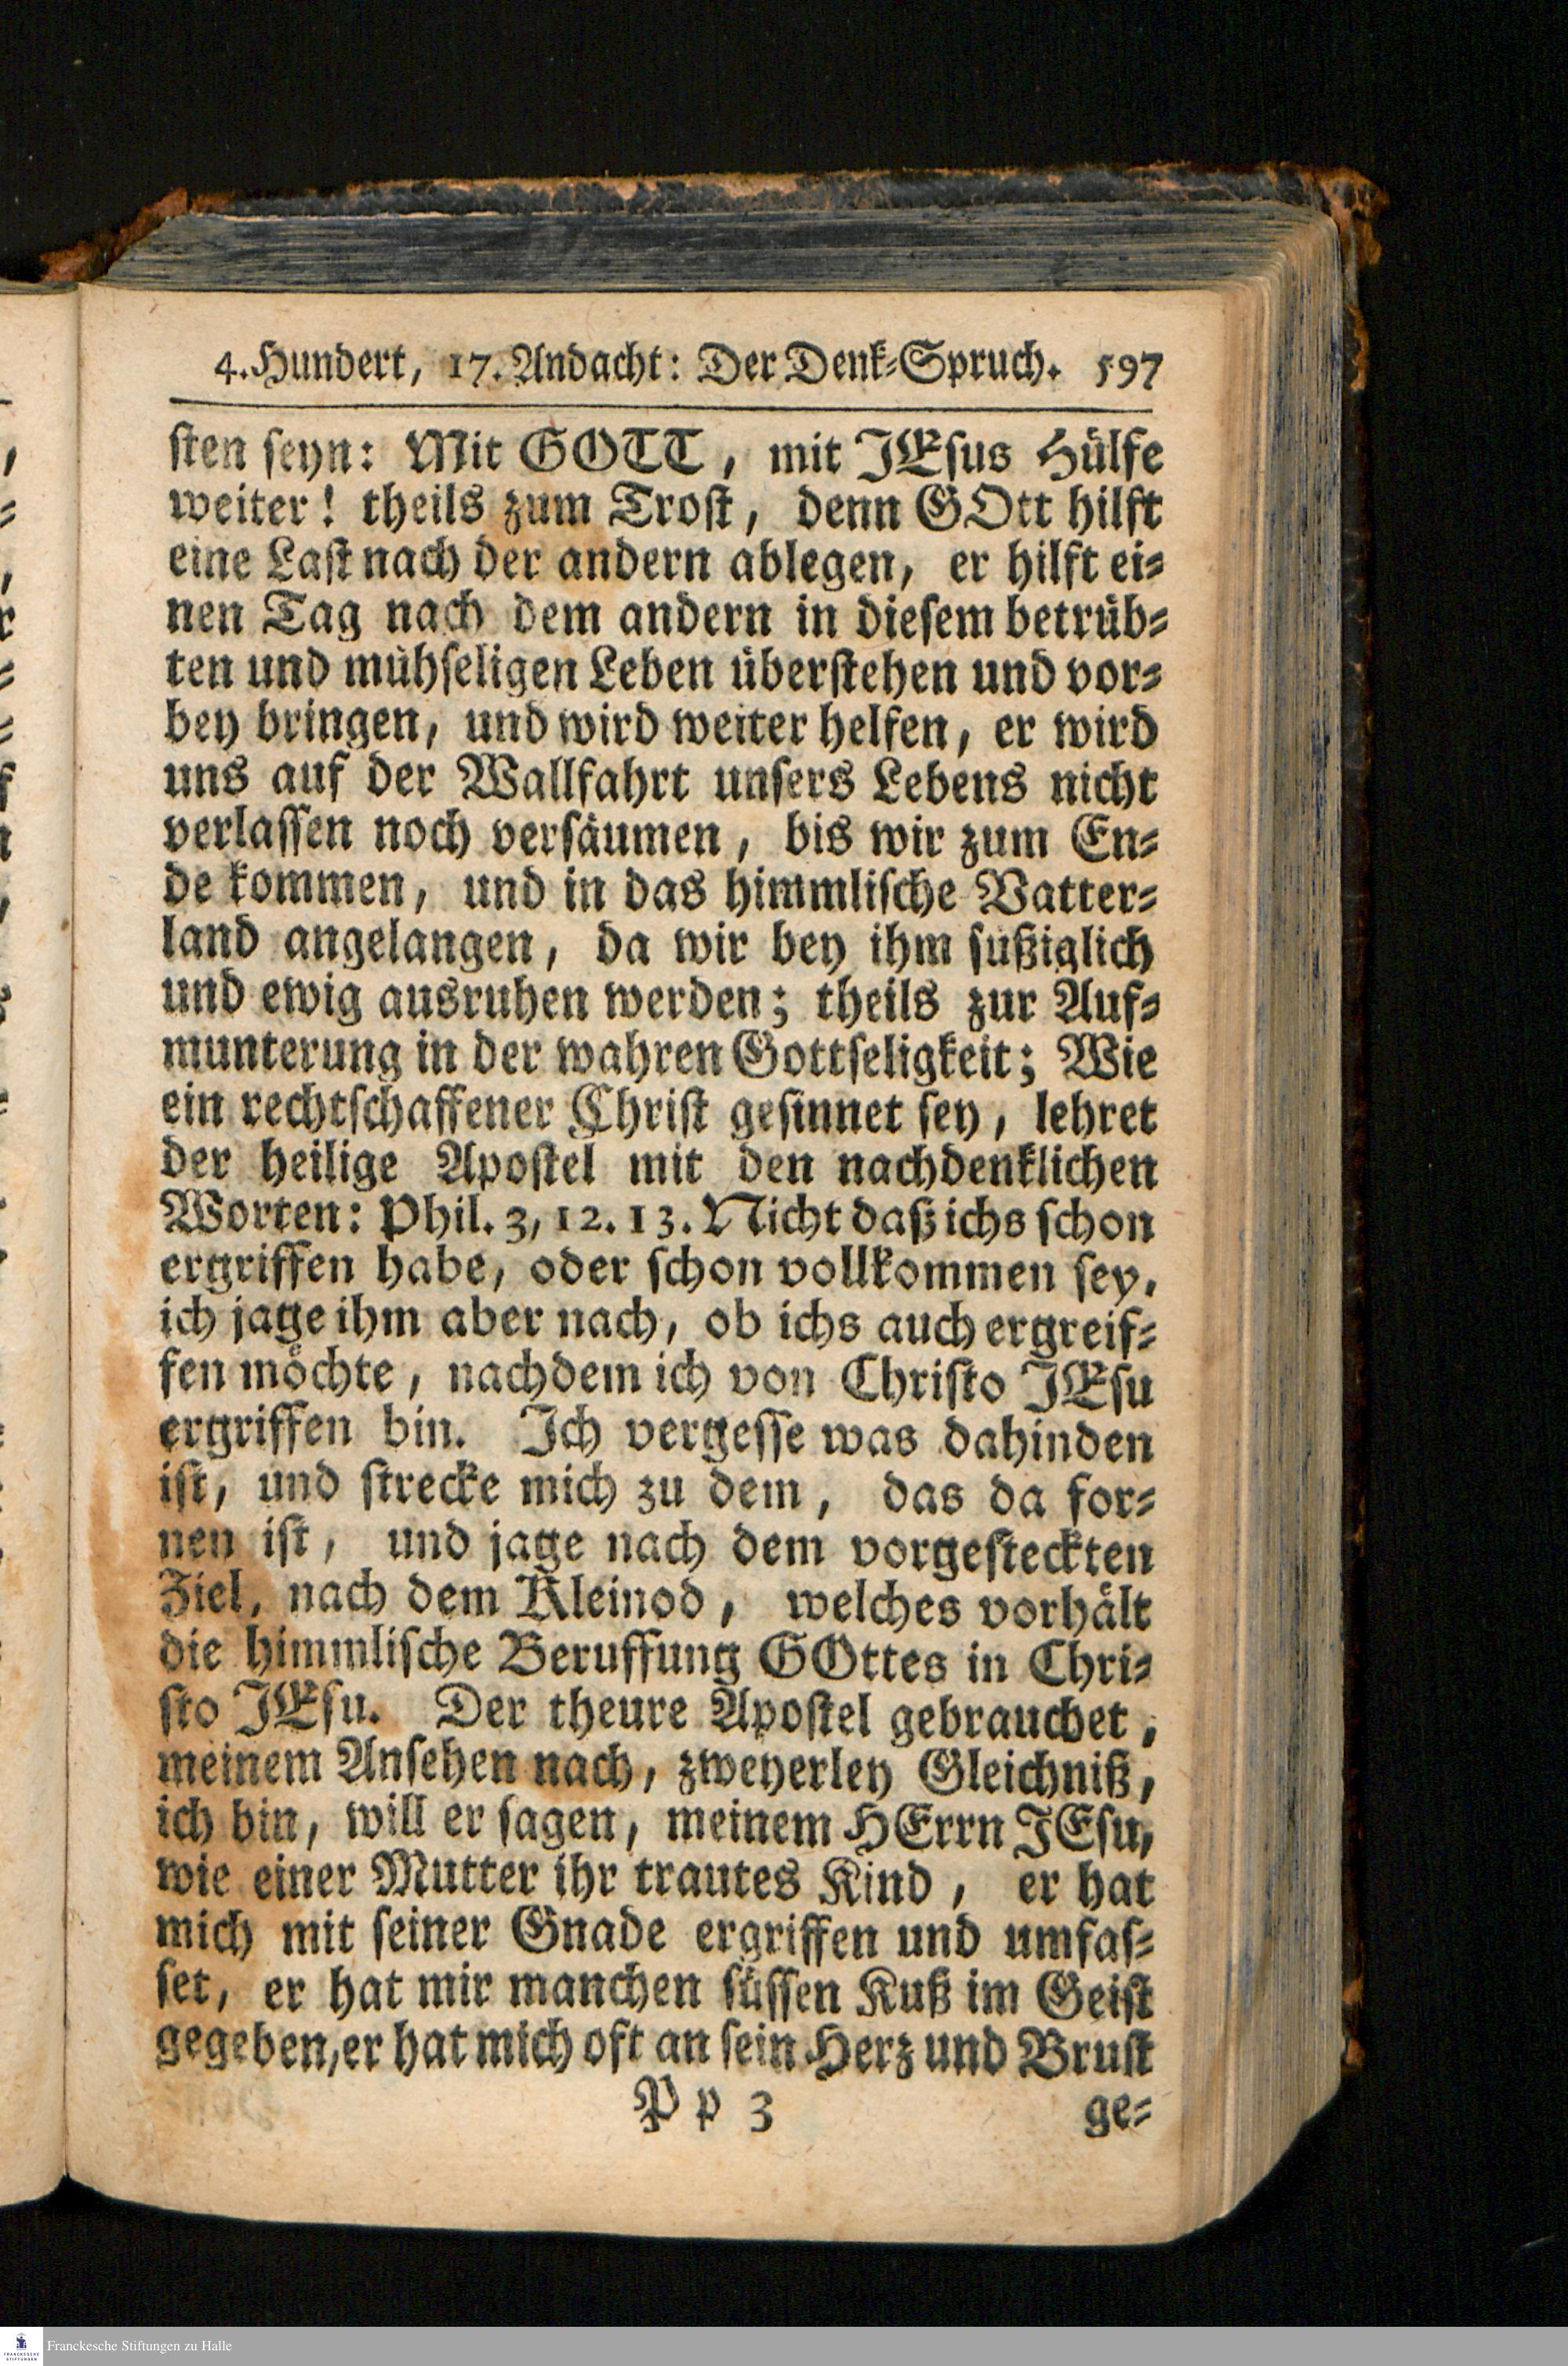 4. Hundert, 17. Andacht: Der Denk-Spruch. 597
sten seyn: Mit GOTT, mit JEsus Hülfe
weiter! theils zum Trost, denn GOtt hilft
eine Last nach der andern ablegen, er hilft ei-
nen Tag nach dem andern in diesem betrüb-
ten und mühseligen Leben überstehen und vor-
bey bringen, und wird weiter helfen, er wird
uns auf der Wallfahrt unsers Lebens nicht
verlassen noch versäumen, bis wir zum En-
de kommen, und in das himmlische Vatter-
land angelangen, da wir bey ihm süßiglich
und ewig ausruhen werden; theils zur Auf-
munterung in der wahren Gottseligkeit; Wie
ein rechtschaffener Christ gesinnet sey, lehret
der heilige Apostel mit den nachdenklichen
Worten: Phil. 3, 12. 13. Nicht daß ichs schon
ergriffen habe, oder schon vollkommen sey,
ich jage ihm aber nach, ob ichs auch ergreif-
fen möchte, nachdem ich von Christo JEsu
ergriffen bin. Ich vergesse was dahinden
ist, und strecke mich zu dem, das da for-
nen ist, und jage nach dem vorgesteckten
Ziel, nach dem Kleinod, welches vorhält
die himmlische Beruffung GOttes in Chri-
sto JEsu. Der theure Apostel gebrauchet,
meinem Ansehen nach, zweyerley Gleichniß,
ich bin, will er sagen, meinem HErrn JEsu,
wie einer Mutter ihr trautes Kind, er hat
mich mit seiner Gnade ergriffen und umfas-
set, er hat mir manchen süssen Kuß im Geist
gegeben, er hat mich oft an sein Herz und Brust
Pp 3 ge-
Franckesche Stiftungen zu Halle
FRANCKESCHE
STIFTUNGEN